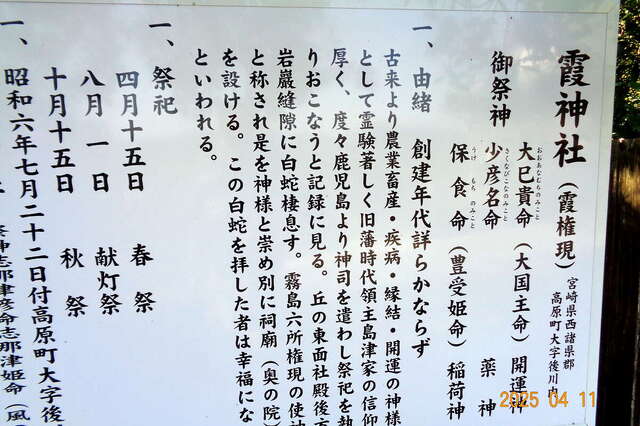 霞神社(霞権現)
宮崎県西諸県郡
高原町大字後川内
御祭神
大巳貴命(大国主命)開運神
おおあなむちのみこと
少彦名命 薬神
すくなびこなのみこと
保食命(豊受姫命)稲荷神
うけもちのみこと
一、由緒 創建年代詳らかならず
古来より農業畜産・疾病・縁結・開運の神様
として霊験著しく旧藩時代領主島津家の信仰
厚く、度々鹿児島より神司を遣わし祭祀を執
りおこなうと記録に見る。丘の東面社殿後方
岩巌縫隙に白蛇棲息す。霧島六所権現の使神
と称され是を神様と崇め別に祠廟(奥の院)
を設ける。この白蛇を拝した者は幸福にな
といわれる。
一、祭祀
四月十五日 春祭
八月一日 献灯祭
十月十五日 秋祭
一、昭和六年七月二十二日付高原町大字後
祭神志那津彦命志那津姫命(風
2025 04 11